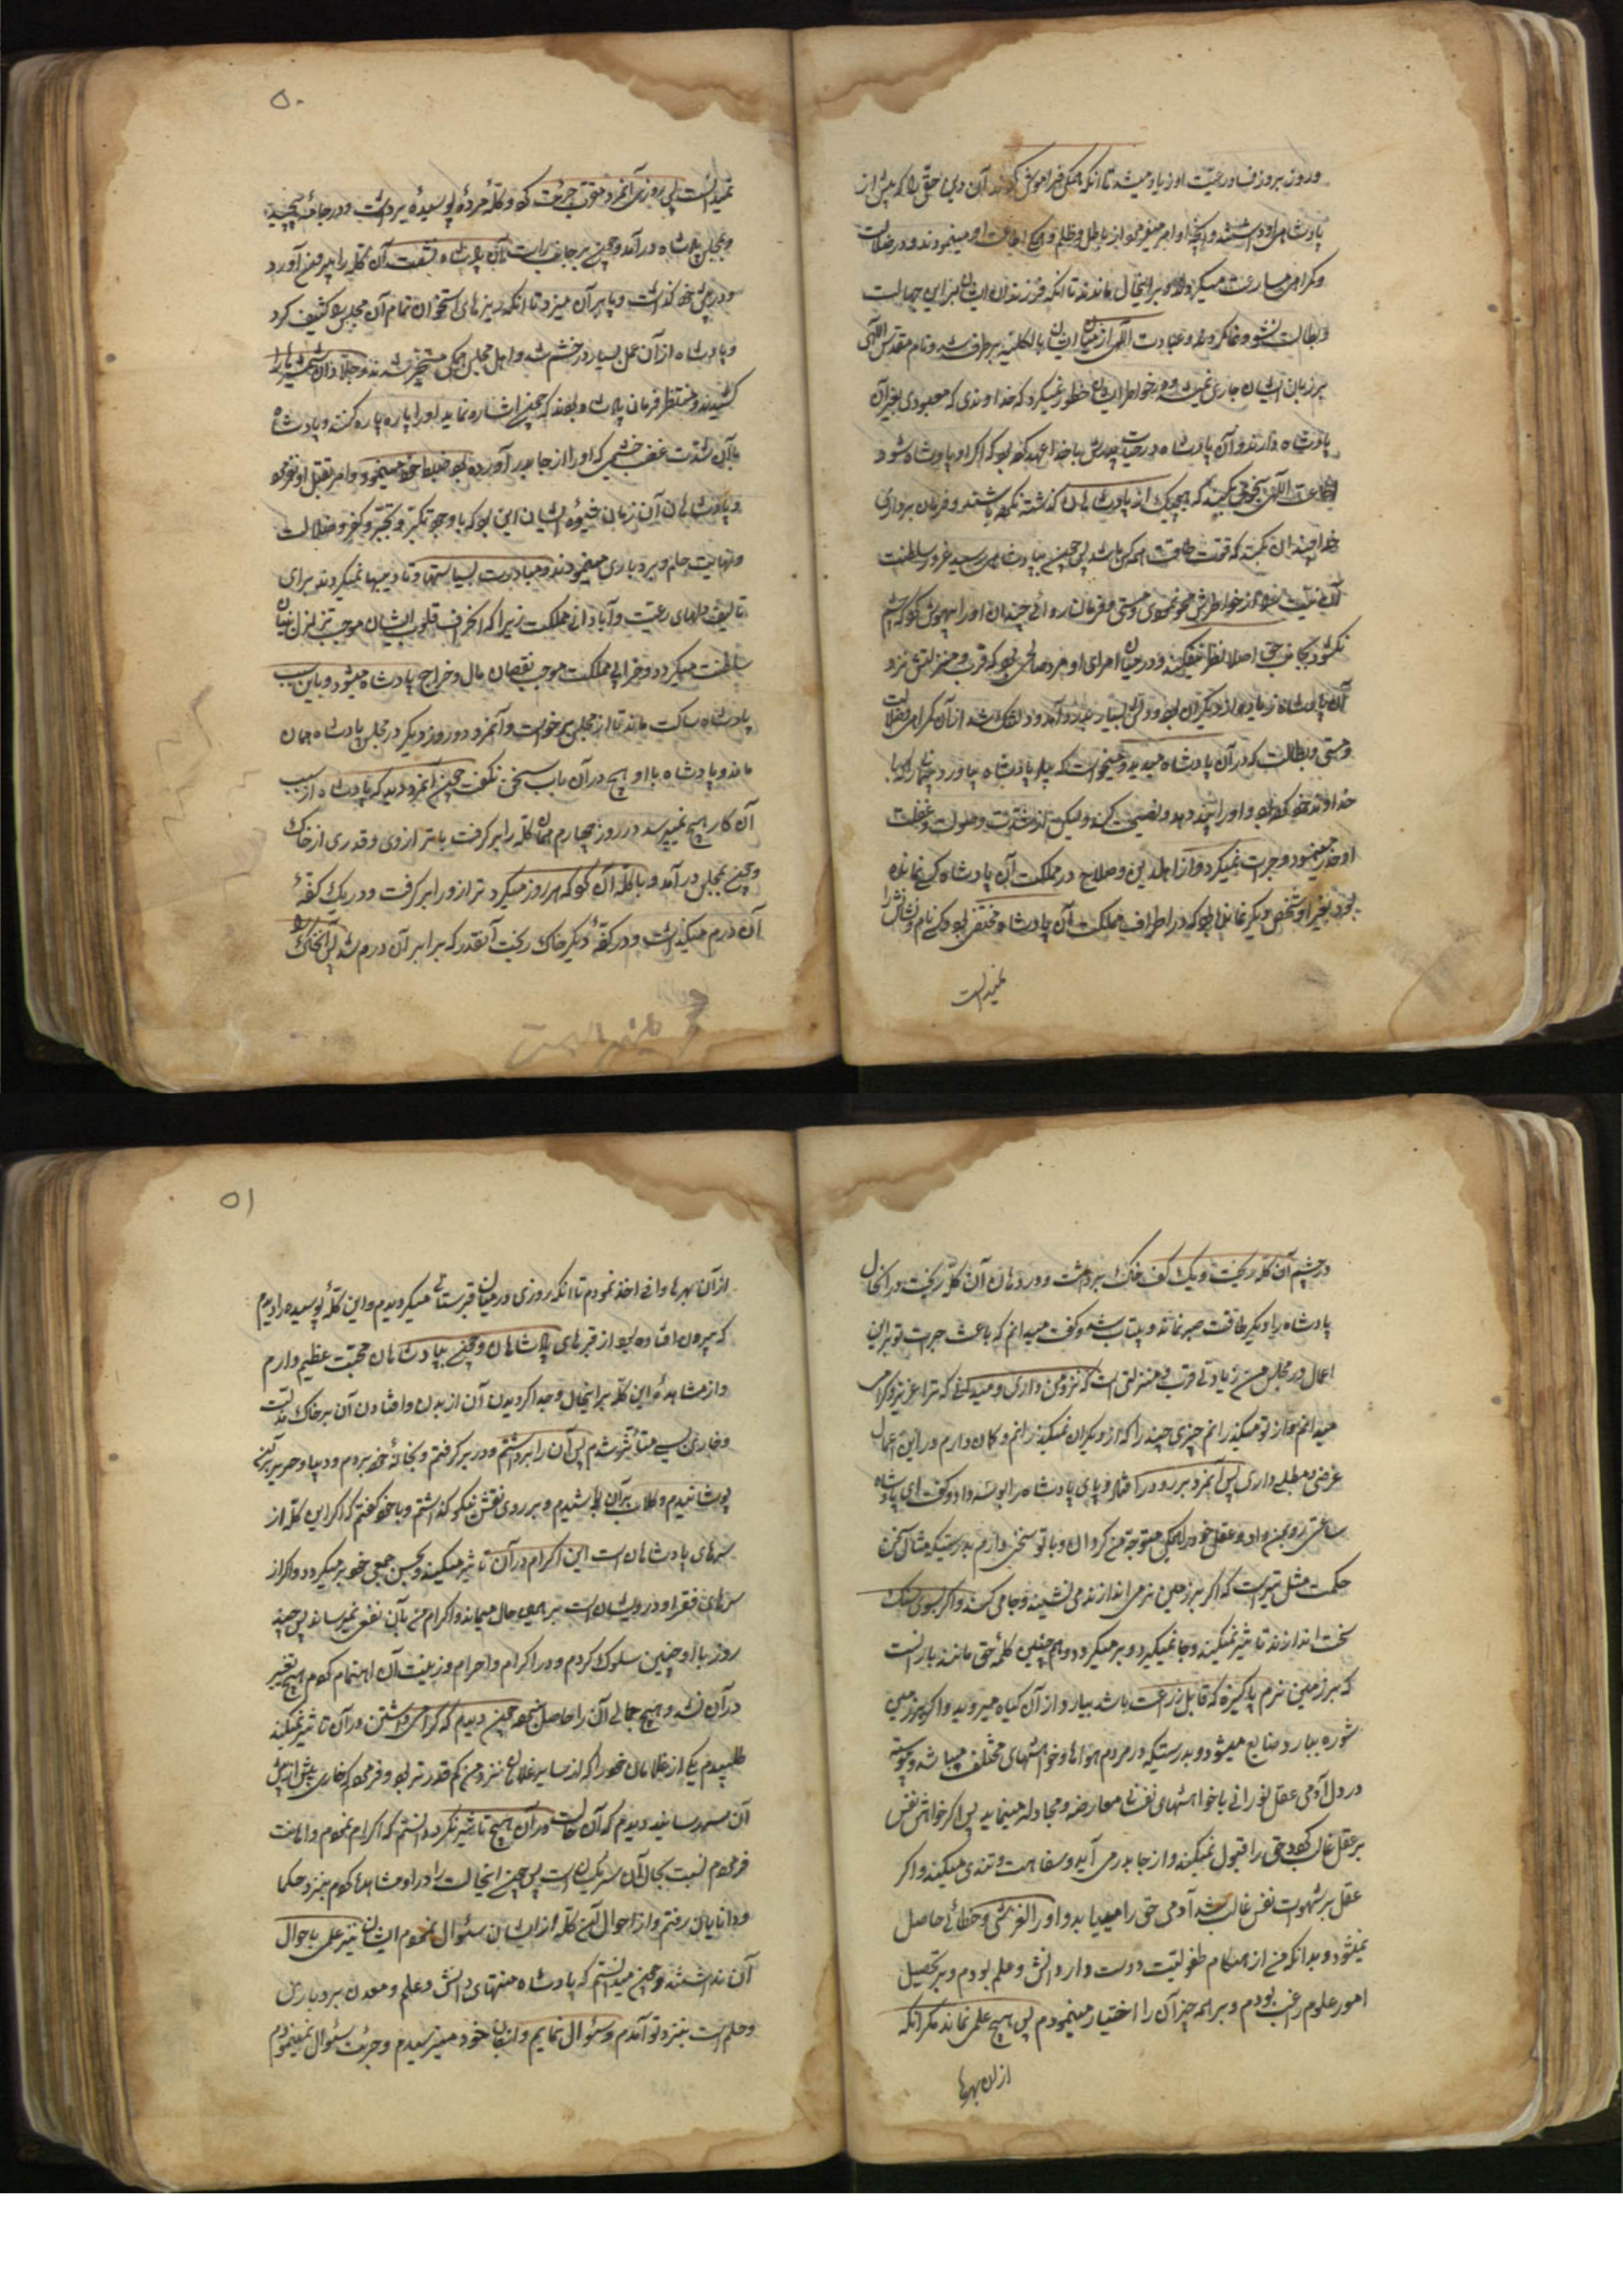 و روز بروز فساد رعیت او زیاد میشد تا انکه همکی فراموش کردند آن دین حق را که پیش از
پادشاهی او داشتند و انچه او امر مینمود از باطل و ظلم همکی اطاعت او مینمودند و در ضلالت
و کمراهی مسارعت میکردند و بر اینحال ماندند تا انکه فرزندان ایشان بر این جهالت
و بطالت نشو و نما کردند و عبادت الهی از میان ایشان بالکلیه برطرف شد و نام مقدس الهی
بر زبان ایشان جاری نمیشد و در خواطر ایشان خطور نمیکرد که خداوندی که معبودی بغیر آن
پادشاه دارند و آن پادشاه در حیات پدرش با خدا عهد کرده بود که اکر او پادشاه شود
اطاعت الهی بنحوی بکند که هیچیک از پادشاهان کذشته نکرده باشند و فرمان برداری
خدا چندان بکند که قوت طاقت هیچکس نباشد پس چون بپادشاهی رسید غرور سلطنت
آن نیت را از خواطرش محو نمود و مستی فرمانروائی چندان او را بیهوش کرد که چشم
نکشود و بجانب حق اصلا نظر نمیکند و در میان امرای او مرد صالحی بود که قرب و منزلتش نزد
آن پادشاه زیاده از دیکران بود و دلش بسیار بدرد آمد و دلتنک شد از آن کمراهی و ضلالت
و مستی و بطالت که در آن پادشاه میدید و میخواست که بیاد پادشاه بیاورد پیمانی را که با
خداوند خود کرده بود و او را پند دهد و نصیحت کند ولیکن از شدت و صولت و غفلت
او حذر مینمود و جرات نمیکرد و از اهل دین و صلاح در مملکت آن پادشاه کسی نمانده
بود بغیر او و شخص دیکر نمانده بود که در اطراف مملکت آن پادشاه مختفی بود که کسی نام و نشانش را
نمیدانست
۵۰
نمیدانست پس روزی آنمرد مقرب جرئت کرد و کلّهٔ مردهٔ پوسیدهٔ برداشت و در جامهٔ پیچید
و بمجلس پادشاه درآمد و چون بر جانب راست آن پادشاه نشست آن کله را بیرون آورد
و در پیش خود کذاشت و پا بر آن میزد تا انکه ریزهای استخوان تمام آن مجلس را کثیف کرد
و پادشاه از آن عمل بسیار در خشم شد و اهل مجلس همکی متحیر شدند و جلادان شمشیرها را
کشیدند و منتظر فرمان پادشاه بودند که چون اشاره نماید او را پاره پاره کنند و پادشاه
با آن شدت غضب خشمی که او را از جا بدر آورده بود ضبط خود مینمود و امر بقتل او نفرمود
و پادشاهان آن زمان شیوهٔ ایشان این بود که با وجود تکبر و تجبر و کفر و ضلالت
و نهایت حلم و بردباری مینمودند و مبادرت بسیاستها و تادیبها نمیکردند برای
تالیف دلهای رعیت و آبادانی مملکت زیرا که انحراف قلوب ایشان موجب تزلزل بنیان
سلطنت میکردد و خرابی مملکت موجب نقصان مال و خراج پادشاه میشود و باین سبب
پادشاه ساکت ماند تا از مجلس برخواست و آنمرد دو روز دیکر در مجلس پادشاه همان
ماند و پادشاه با او هیچ در آن باب سخن نکفت چون آنمرد دید که پادشاه از سبب
آن کار هیچ نمیپرسد در روز چهارم همان کله را برکرفت با ترازوی و قدری از خاک
و چون بمجلس درآمد و با کله آن کرد که هر روز میکرد ترازو را برکرفت و در یک کفهٔ
آن درم میکذاشت و در کفهٔ دیکر خاک ریخت آنقدر که برابر آن درم شد پس آن خاک را
در چشم آن کله ریخت و یک کف خاک برداشت و در دهان آن کله ریخت در انحال
پادشاه را دیکر طاقت صبر نماند و بیتاب شد و کفت میدانم که باعث جرت تو بر این
اعمال در مجلس من زیادتی قرب و منزلتی است که نزد من داری و میدانی که ترا عزیز و کرامی
میدانم و از تو میکذرانم چیزی چند را که از دیکران نمیکذرانم و کمان دارم در این اعمال
غرضی و مطلبی داری پس آنمرد برو در افتاد و پای پادشاه را بوسه داد و کفت ای پادشاه
ساعتی رو بمن دار و عقل خود را همکی متوجه من کردان و با تو سخنی دارم بدرستیکه مثال سخن
حکمت مثل تیر است که اکر بر زمین نرمی اندازند می نشیند و جا می کند و اکر بسوی سنک
سخت اندازند تاثیر نمیکند و جا نمیکیرد و بر میکردد و هم چنین کلمهٔ حق مانند بارانست
که بر زمین نرم پاکیزه که قابل زراعت باشد ببارد از آن کیاه میروید و اکر بر زمین
شوره ببارد ضایع میشود و بدرستیکه در مردم هواها و خواهشهای مختلف میباشد و پیوسته
در دل آدمی عقل نورانی با خواهشهای نفسانی معارضه و مجادله مینماید پس اکر خواهش نفس
بر عقل غالب کردد حق را قبول نمیکند و از جا بدر می آید و سفاهت و تندی میکند و اکر
عقل بر شهوت نفس غالب شد آدمی حق را مییابد و او را لغزشی و خطائی حاصل
نمیشود و بدانکه من از هنکام طفولیت دوست دار دانش و علم بودم و بر تحصیل
امور علوم راغب بودم و بر همه چیز آن را اختیار مینمودم پس هیچ علمی نماند مکر انکه
از ان بهرها
۵۱
از آن بهرها وافی اخذ نمودم تا انکه روزی در میان قبرستانی میکردیدم و این کلهٔ پوسیده را دیدم
که بیرون افتاده بود از قبرهای پادشاهان و چون بپادشاهان محبت عظیم دارم
و از مشاهدهٔ این کله بر اینحال و جدا کردیدن آن از بدن و افتادن آن بر خاک مذلت
و خاری بسی متأثر شدم پس آن را برداشتم و در بر کرفتم و بخانهٔ خود بردم و دیبا و حریر بر آن
پوشانیدم و کلاب بر آن پاشیدم و بر روی فرش نیکو کذاشتم و با خود کفتم که اکر این کله از
سرهای پادشاهان است این اکرام در آن تاثیر میکند و بحسن جمعی خود بر میکردد و اکر از
سرهای فقرا و درویشان است بر همین حال میماند و اکرام من بآن نفع نمیرساند پس چند
روز با او چنین سلوک کردم و در اکرام و احرام و زینت آن اهتمام کردم هیچ تغییر
در آن نشد و هیچ جمالی آن را حاصل نشد چون دیدم که کرامی داشتن در آن تاثیر نمیکند
طلبیدم یکی از غلامان خود را که از سایر غلامان نزد من کم قدرتر بود و فرمودم که خاری بیش از پیش
آن سر رسانید دیدم که آن حالت در آن هیچ تاثیر نکرد دانستم که اکرام نمودم و اهانت
فرمودم نسبت بحال آن سر یکسان است پس چون اینحالت را در او مشاهده کردم بنزد حکما
و دانایان رفتم و از احوال آن کله از ایشان سئوال نمودم ایشان نیز علمی باحوال
آن نداشتند و چون میدانستم که پادشاه منتهای دانش و علم و معدن بردباری
و حلم است بنزد تو آمدم و سئوال نمایم و از جان خود میترسیدم و جرئت سئوال نمینمودم